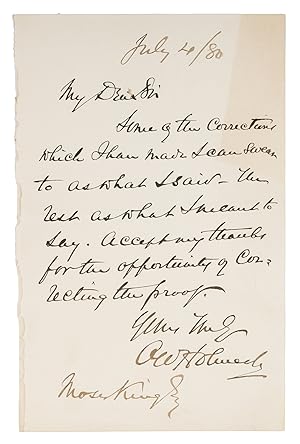 July 4/80
My Dear Sir
Some of the corrections
which I have made I can swear
to as what I said - the
rest as what I meant to
say. Accept my thanks
for the opportunity of cor=
recting the proof.
Yours truly
O W Holmes Jr
Moses King Esq